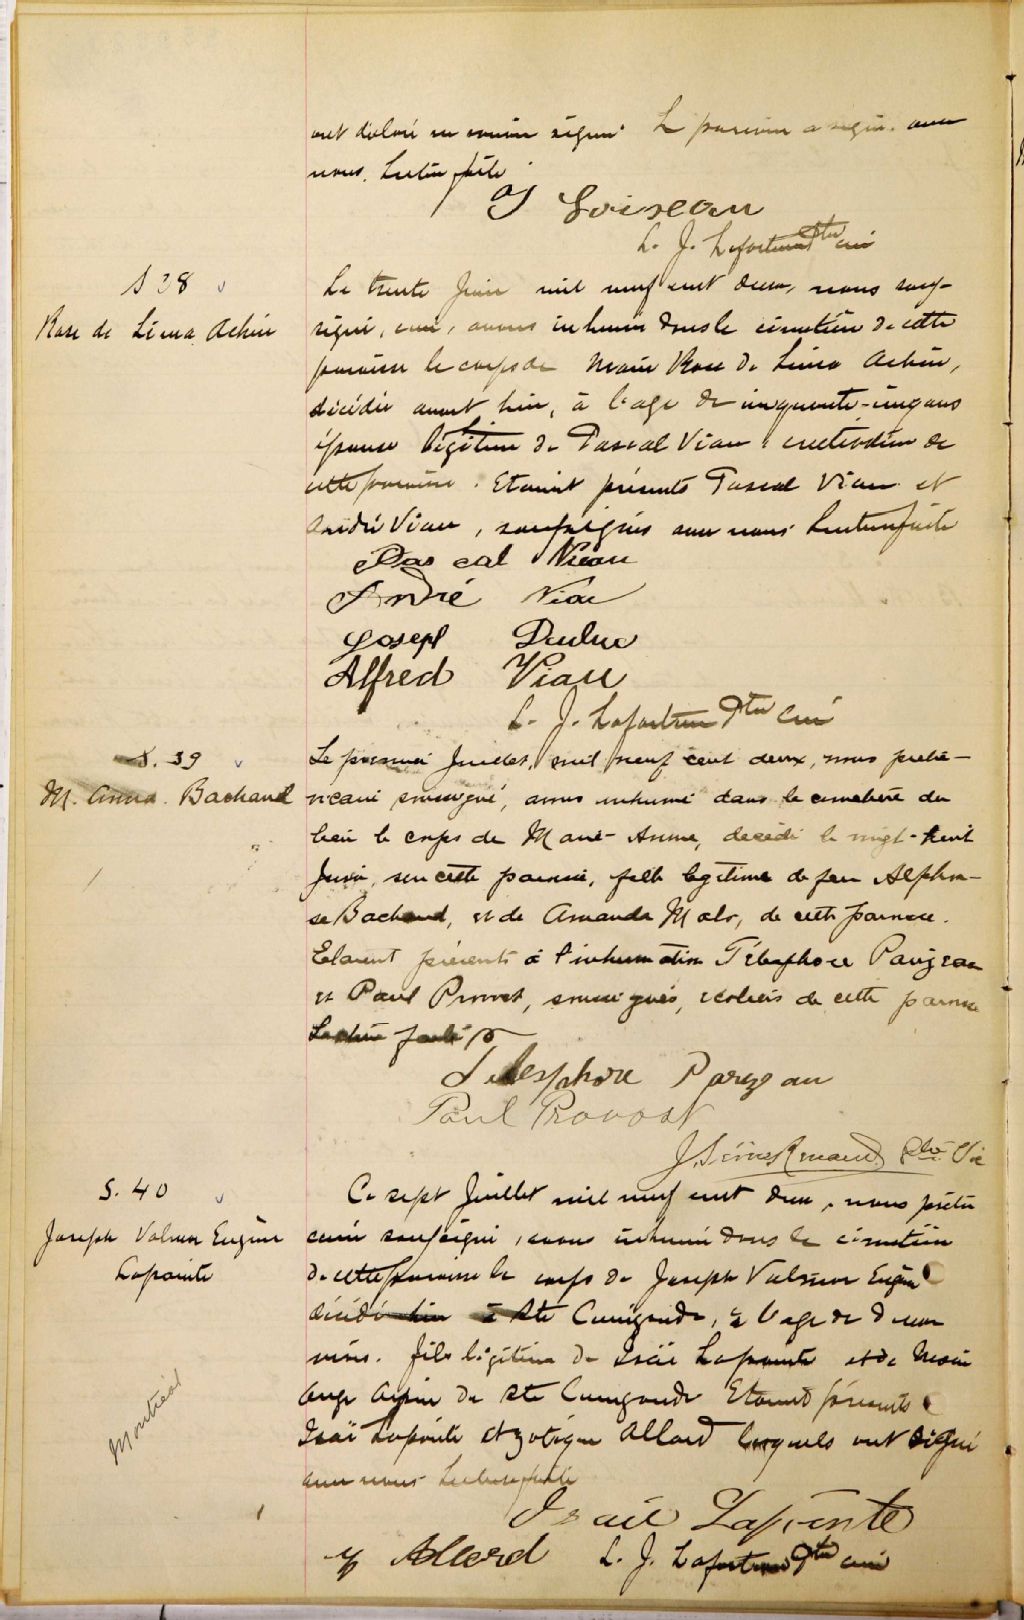 ont déclaré ne savoir signer. Le parrain a signé avec
nous. Lecture faite.
Loiseau
L. J. Lafortune Ptre curé
S 38
Rose de Lima Achin
Le trente Juin mil neuf cent deux, nous sous-
signé, curé, avons inhumé dans le cimetière de cette
paroisse le corps de Marie Rose de Lima Achin,
décédée avant hier, à l'age de cinquante-cinq ans
épouse légitime de Pascal Viau, cultivateur de
cette paroisse. Etaient présents Pascal Viau et
André Viau, soussignés avec nous Lecture faite
Pascal Viau
André Viau
Joseph
Alfred Viau
L. J. Lafortune Ptre Curé
S. 39
M. Anna Bachand
Le premier Juillet, mil neuf cent deux, nous prêtre-
vicaire soussigné, avons inhumé dans le cimetière du
lieu le corps de Marie-Anna, décédé le vingt-huit
Juin, en cette paroisse, fille légitime de feu Alphon-
se Bachand, et de Amanda Malo, de cette paroisse.
Etaient présents à l'inhumation Télesphore Parizeau
et Paul Provost, soussignés, écoliers de cette paroisse
Lecture faite
Telesphore Parizeau
Paul Provost
Ptre Vic
S. 40
Joseph Valmor Eugène
Lapointe
Ce sept Juillet mil neuf cent deux, nous prêtre
curé soussigné, avons inhumé dans le cimetière
de cette paroisse le corps de Joseph Valmor Eugène
décédé hier à Ste Cunégonde, à l'age de deux
mois. fils légitime de Isaïe Lapointe et de Marie
Ange Arpin de Ste Cunégonde Etaient présents
Isaïe Lapointe et Zotique Allard lesquels ont signé
avec nous Lecture faite
Montréal
Isaïe Lapointe
Z Allard L. J. Lafortune Ptre curé